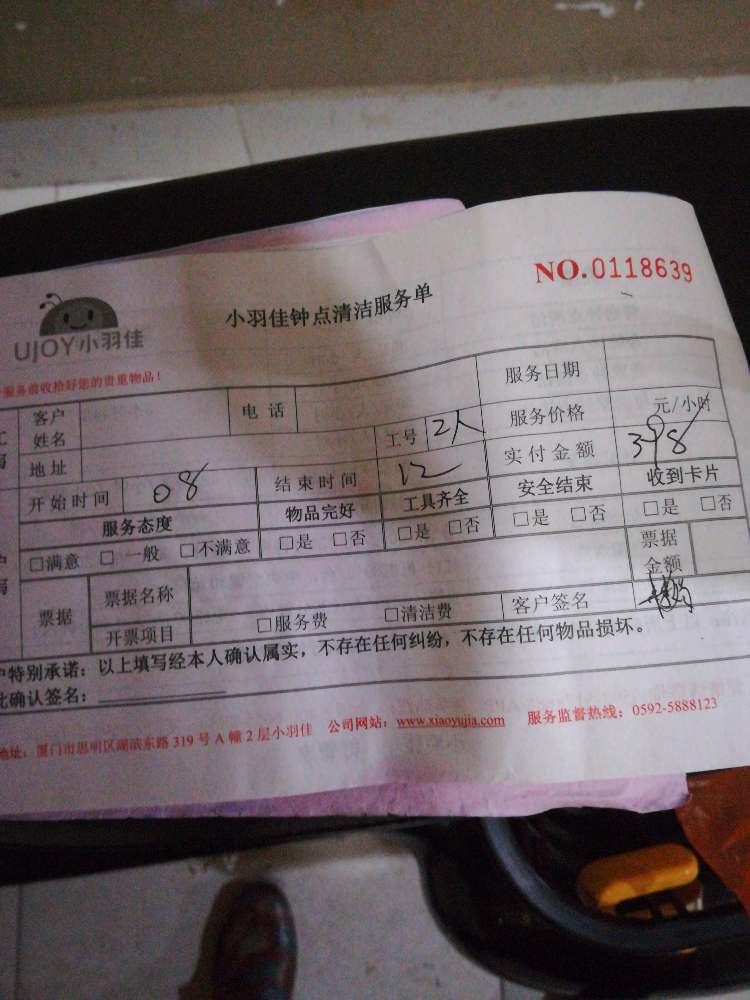 NO.0118639
UJOY小羽佳
小羽佳钟点清洁服务单
服务前收拾好您的贵重物品！
客户姓名 电话 服务日期
地址 工号 2人 服务价格 元/小时
开始时间 08 结束时间 12 实付金额 398
服务态度 物品完好 工具齐全 安全结束 收到卡片
□满意 □一般 □不满意 □是 □否 □是 □否 □是 □否 □是 □否
票据 票据名称 票据金额
开票项目 □服务费 □清洁费 客户签名
户特别承诺：以上填写经本人确认属实，不存在任何纠纷，不存在任何物品损坏。
此确认签名：
地址：厦门市思明区湖滨东路 319 号 A 幢 2 层小羽佳 公司网站：www.xiaoyujia.com 服务监督热线：0592-5888123